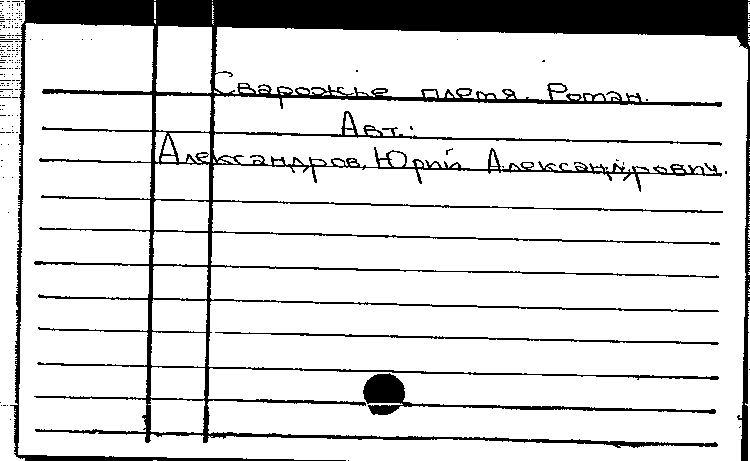 Сварожье племя. Роман.
Авт.:
Александров, Юрий Александрович.